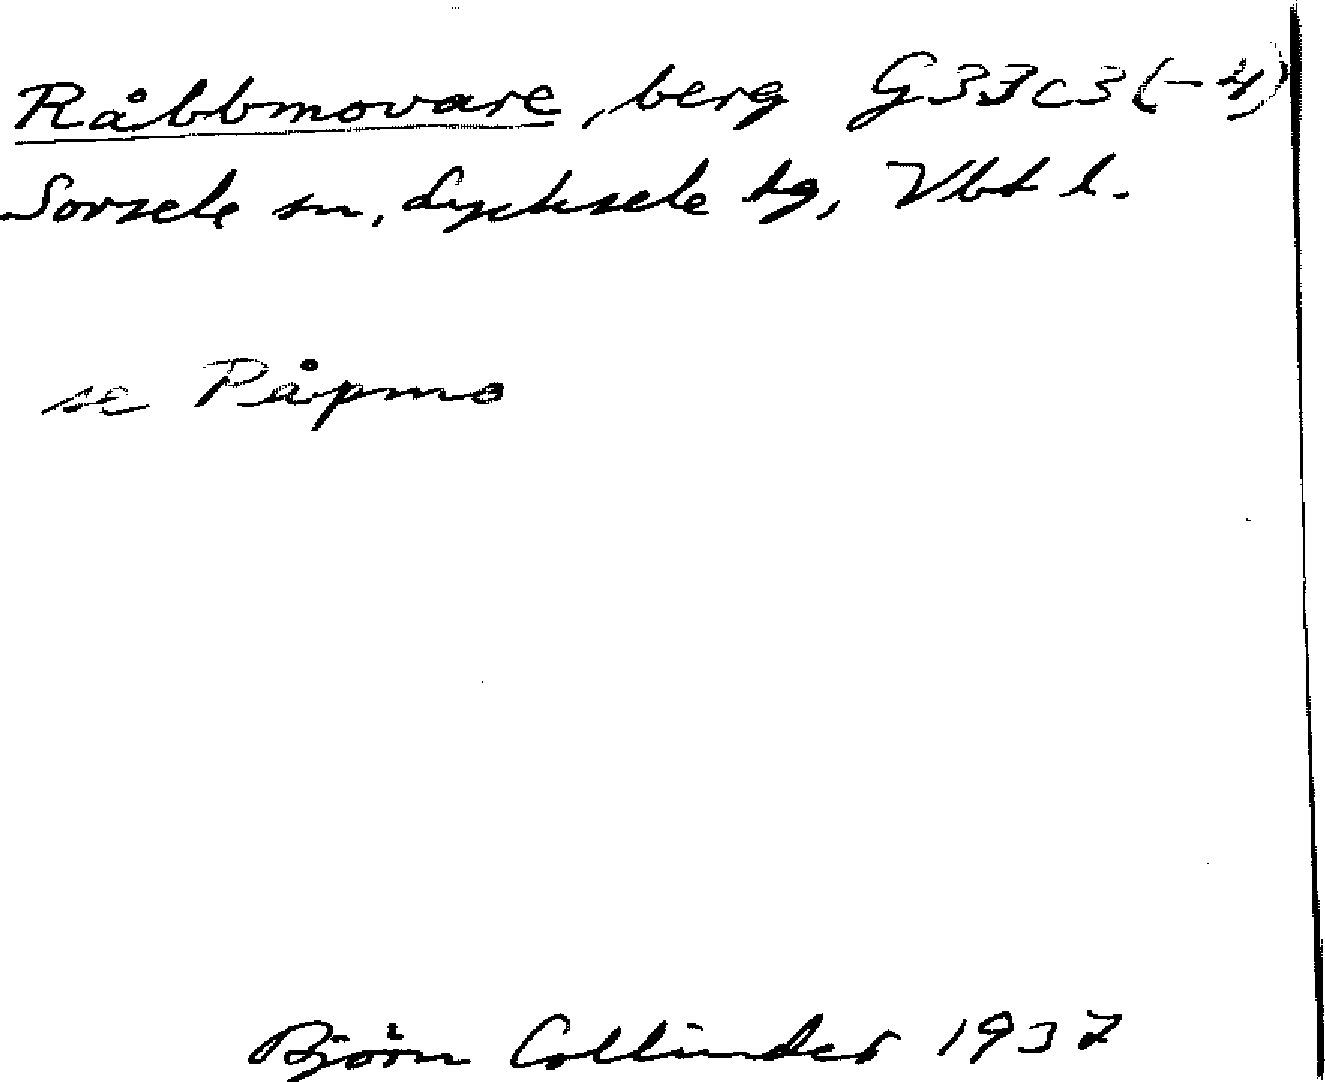 Råbbmovare, berg G33c3(-4)
Sorsele sn, Lycksele tg, Vbt l.
se Påpmo
Björn Collinder 1937